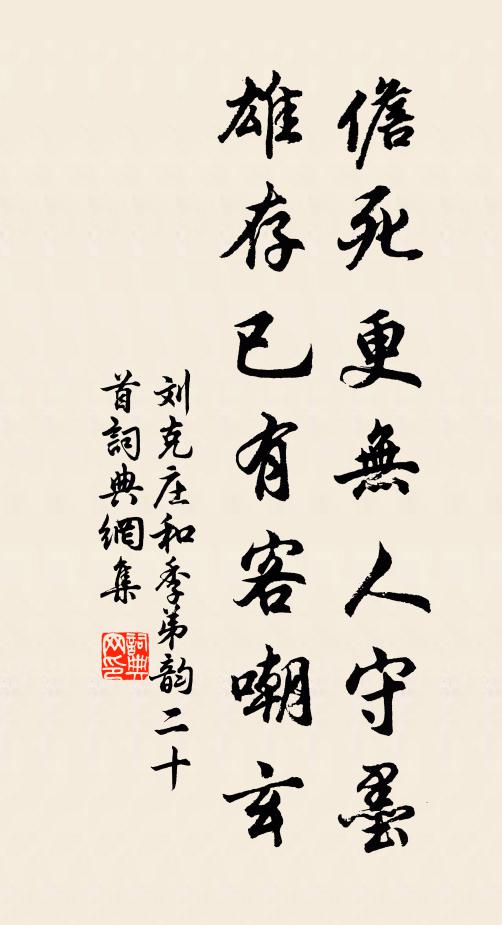 儋死更無人守墨
雄存已有客嘲玄
刘克庄和季弟韵二十
首詞典網集
詞典網印